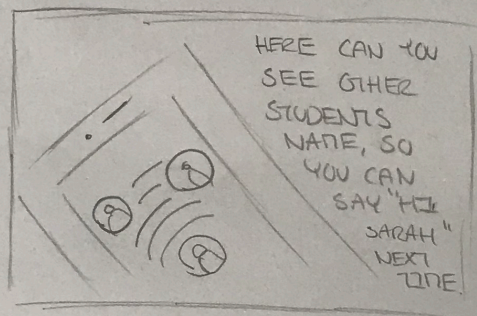 HERE CAN YOU
SEE OTHER
STUDENTS
NAME, SO
YOU CAN
SAY "HI
SARAH"
NEXT
TIME.